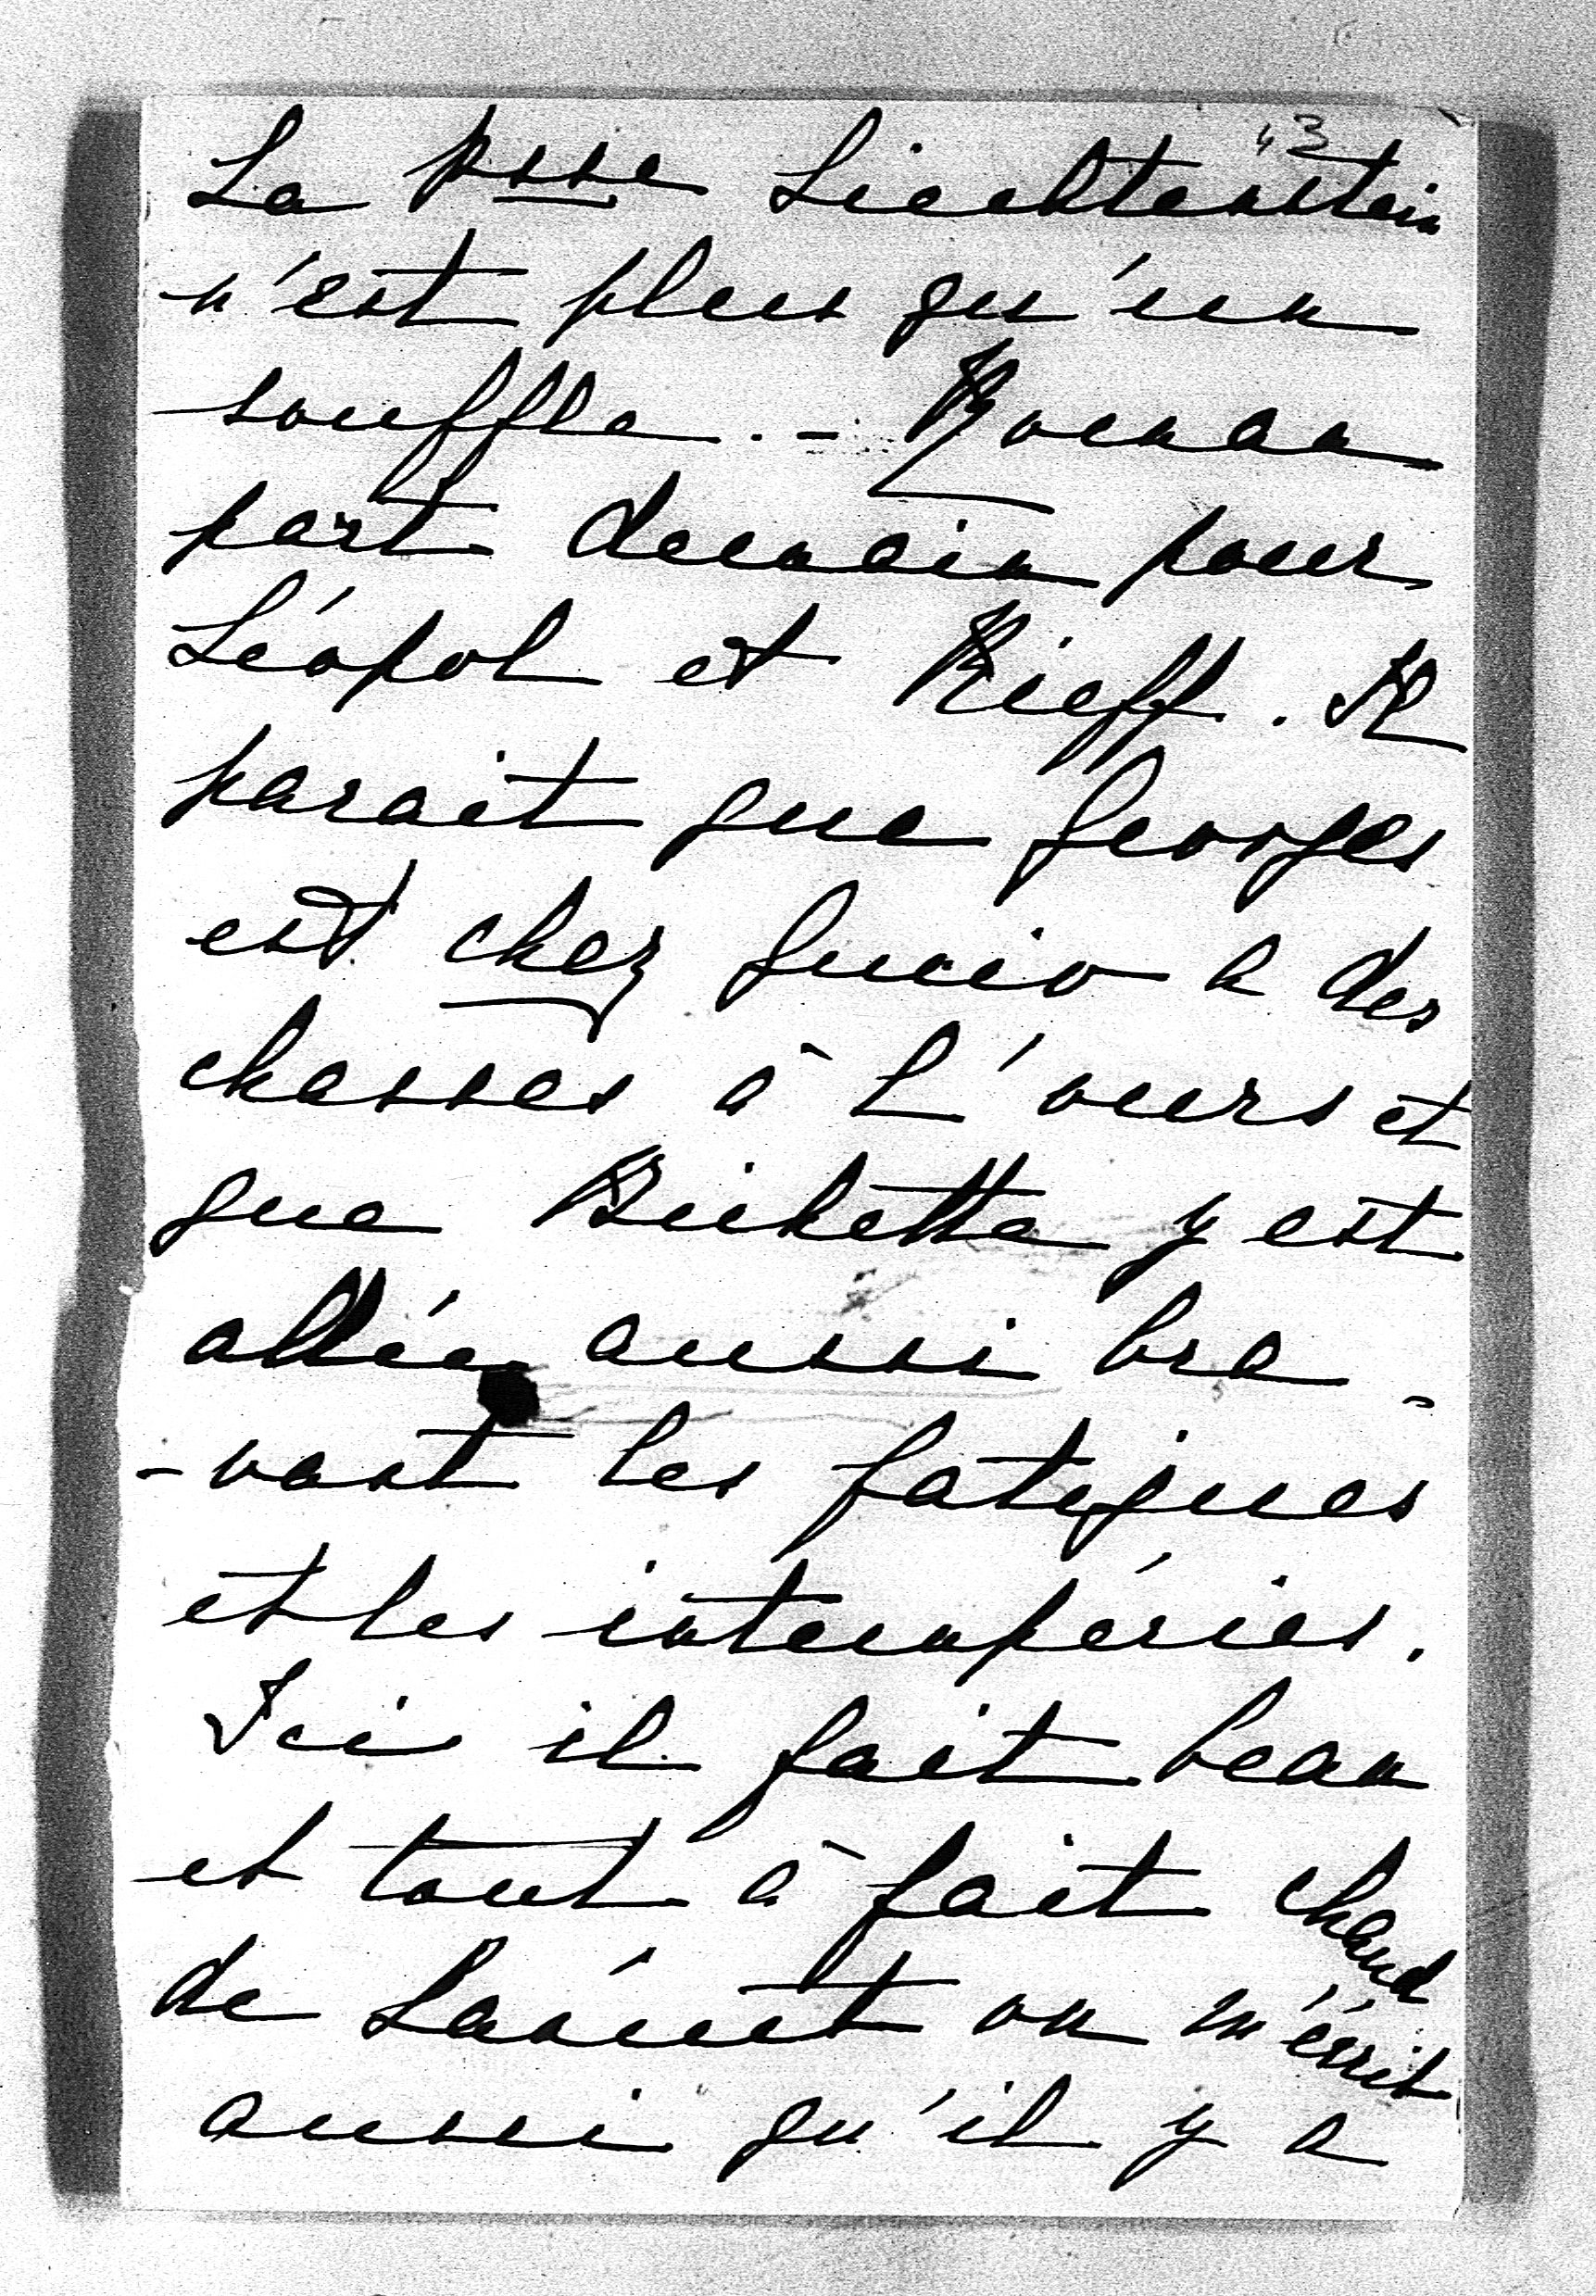 43
La psse Liechtenstein
n'est plus qu'un
souffle. - Roman
part demain pour
Léopol et Kieff. Il
parait que Georges
est chez Gucio a des
chasses à l'ours et
que Bichette y est
allée aussi bra-
-vant les fatigues
et les intempéries.
Ici il fait beau
et tout à fait chaud
de Lancut on m'écrit
aussi qu'il y a